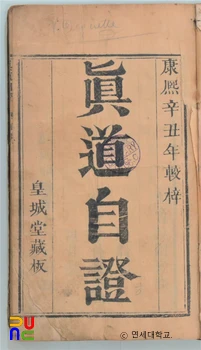 康熙辛丑年較梓
眞道自證
皇城堂藏板
© 연세대학교.